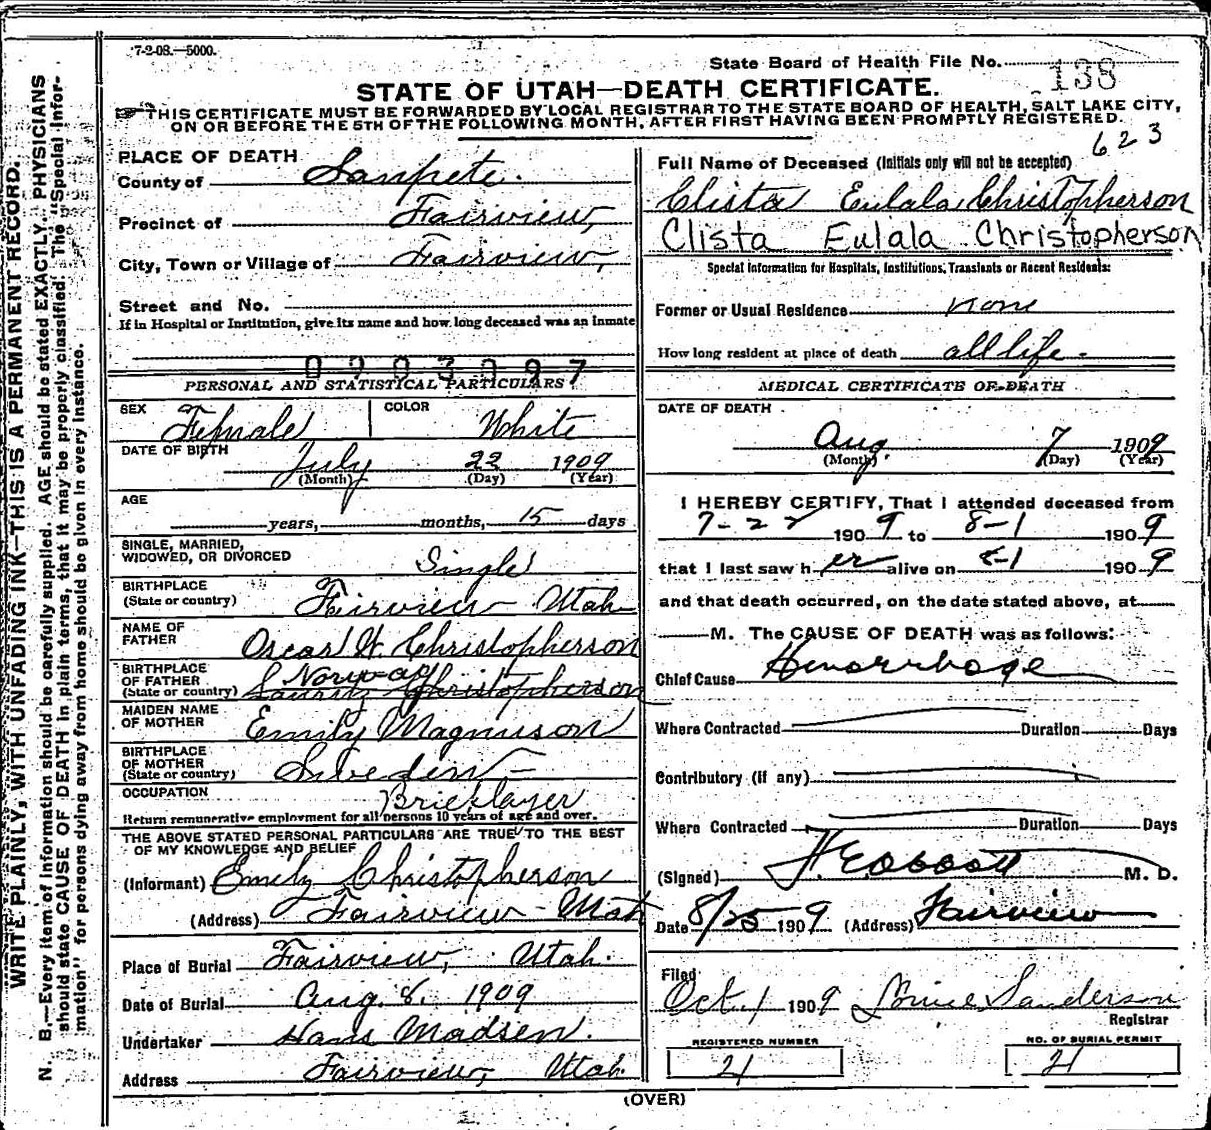 7-2-08.—5000.
State Board of Health File No. 138
STATE OF UTAH—DEATH CERTIFICATE.
THIS CERTIFICATE MUST BE FORWARDED BY LOCAL REGISTRAR TO THE STATE BOARD OF HEALTH, SALT LAKE CITY,
ON OR BEFORE THE 5TH OF THE FOLLOWING MONTH, AFTER FIRST HAVING BEEN PROMPTLY REGISTERED.
623
WRITE PLAINLY, WITH UNFADING INK—THIS IS A PERMANENT RECORD.
N. B.—Every item of information should be carefully supplied. AGE should be stated EXACTLY. PHYSICIANS
should state CAUSE OF DEATH in plain terms, that it may be properly classified. The "Special Infor-
mation" for persons dying away from home should be given in every instance.
PLACE OF DEATH
County of Sanpete.
Precinct of Fairview,
City, Town or Village of Fairview,
Street and No.
If in Hospital or Institution, give its name and how long deceased was an inmate
0203097
PERSONAL AND STATISTICAL PARTICULARS
SEX Female COLOR White
DATE OF BIRTH July 22 1909
(Month) (Day) (Year)
AGE
years, months, 15 days
SINGLE, MARRIED,
WIDOWED, OR DIVORCED Single
BIRTHPLACE
(State or country) Fairview Utah
NAME OF
FATHER Oscar W. Christopherson
BIRTHPLACE
OF FATHER Norway
(State or country) Lauritz Christopherson
MAIDEN NAME
OF MOTHER Emily Magnuson
BIRTHPLACE
OF MOTHER
(State or country) Sweden
OCCUPATION Bricklayer
Return remunerative employment for all persons 10 years of age and over.
THE ABOVE STATED PERSONAL PARTICULARS ARE TRUE TO THE BEST
OF MY KNOWLEDGE AND BELIEF
(Informant) Emily Christopherson
(Address) Fairview Utah
Place of Burial Fairview, Utah.
Date of Burial Aug. 8. 1909
Undertaker Hans Madsen.
Address Fairview, Utah.
Full Name of Deceased (Initials only will not be accepted)
Clista Eulala Christopherson
Clista Eulala Christopherson
Special Information for Hospitals, Institutions, Transients or Recent Residents:
Former or Usual Residence none
How long resident at place of death all life.
MEDICAL CERTIFICATE OF DEATH
DATE OF DEATH
Aug. 7 1909
(Month) (Day) (Year)
I HEREBY CERTIFY, That I attended deceased from
7-22 1909 to 8-1 1909
that I last saw her alive on 8-1 1909
and that death occurred, on the date stated above, at
M. The CAUSE OF DEATH was as follows:
Chief Cause Hemorrhage
Where Contracted Duration Days
Contributory (if any)
Where Contracted Duration Days
(Signed) M. D.
Date 8/25 1909 (Address) Fairview
Filed
Oct. 1 1909 Sanderson
Registrar
REGISTERED NUMBER NO. OF BURIAL PERMIT
21 21
(OVER)